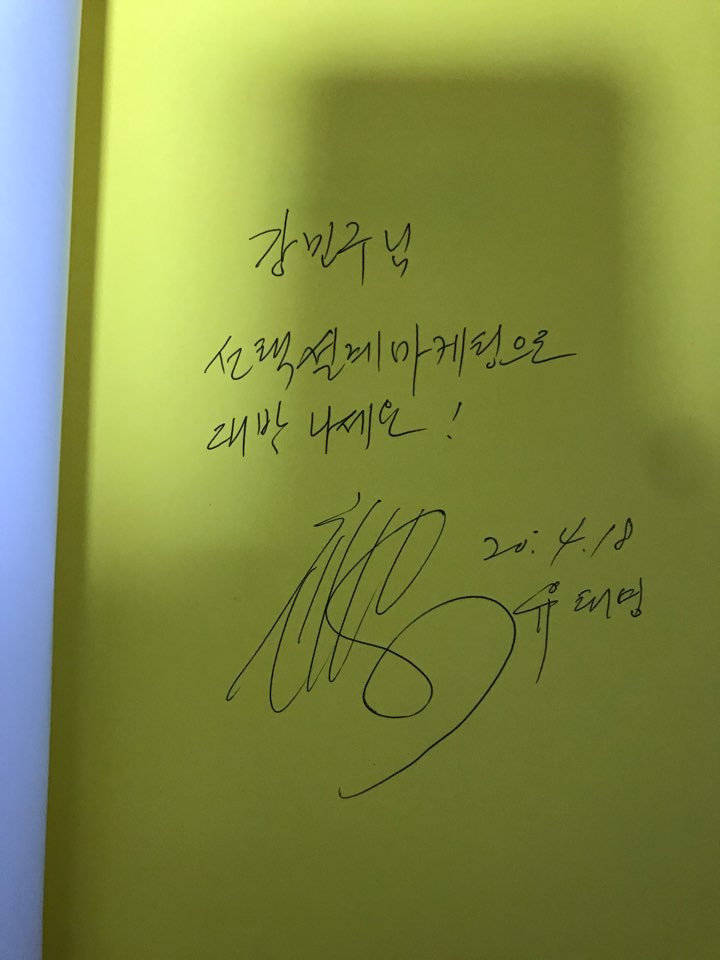 강민주님
선택설계마케팅으로
대박 나세요!
20. 4. 18
유태명